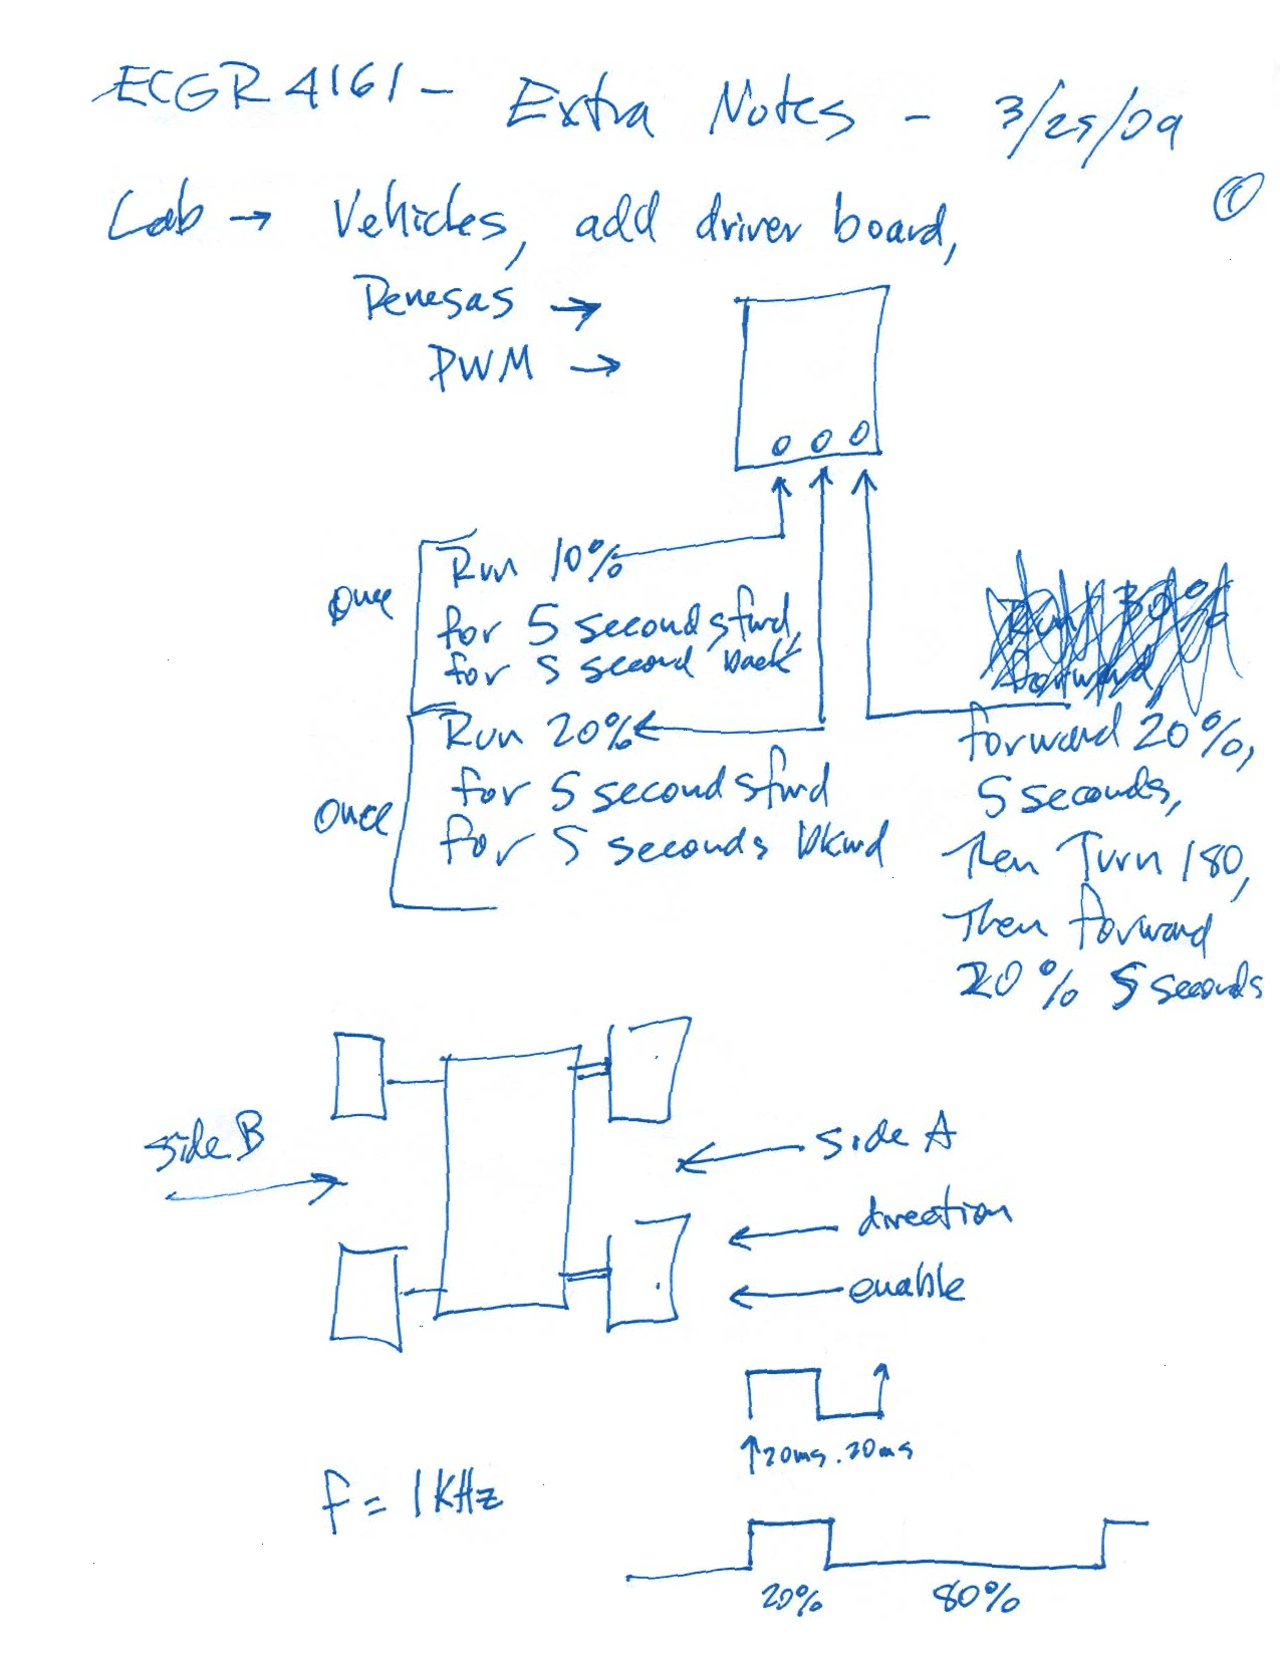 ECGR 4161 - Extra Notes - 3/25/09
①
Lab → Vehicles, add driver board,
Renesas →
PWM →
O O O
Once
Run 10%
for 5 seconds fwd,
for 5 second back
Once
Run 20%
for 5 seconds fwd
for 5 seconds bkwd
forward 20%,
5 seconds,
Then Turn 180,
Then forward
20% 5 seconds
side B
side A
direction
enable
20ms. 20ms
f = 1 KHz
20% 80%